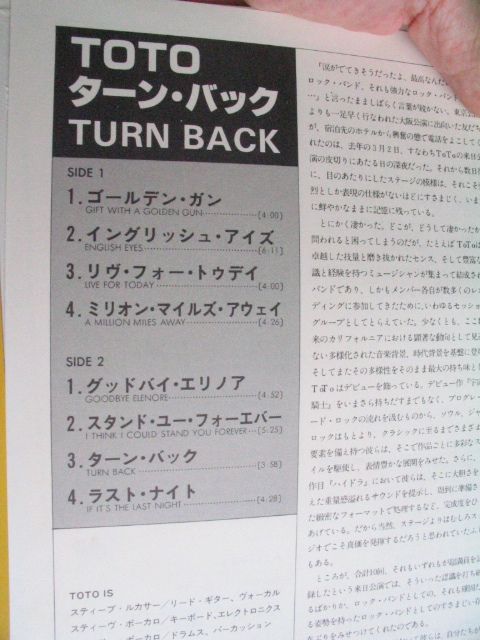 TOTO
ターン・バック
TURN BACK
SIDE 1
1. ゴールデン・ガン
GIFT WITH A GOLDEN GUN [4:00]
2. イングリッシュ・アイズ
ENGLISH EYES [6:11]
3. リヴ・フォー・トゥデイ
LIVE FOR TODAY [4:00]
4. ミリオン・マイルズ・アウェイ
A MILLION MILES AWAY [4:26]
SIDE 2
1. グッドバイ・エリノア
GOODBYE ELENORE [4:52]
2. スタンド・ユー・フォーエバー
I THINK I COULD STAND YOU FOREVER [5:25]
3. ターン・バック
TURN BACK [3:58]
4. ラスト・ナイト
IF IT'S THE LAST NIGHT [4:28]
TOTO IS
スティーブ・ルカサー/リード・ギター、ヴォーカル
スティーヴ・ポーカロ/キーボード、エレクトロニクス
ポーカロ/ドラムス、パーカッション
「涙がでてきそうだったよ、最高なんだ
ロック・バンド、それも強力なロック・バンド
…」と言ったまましばらく言葉が続かない。東京公
よりも一足早く行なわれた大阪公演に出向いた友だち
が、宿泊先のホテルから興奮の態で電話をよこしてく
れたのは、去年の3月2日、すなわちTOTOの来日公
演の皮切りにあたる日の深夜だった。それから数日
に、目のあたりにしたステージの模様は、それこそ
烈としか表現の仕様がないほどにすさまじく、いま
に鮮やかなままに記憶に残っている。
とにかく凄かった。どこが、どうして凄かったか
問われると困ってしまうのだが、たとえばTOTOは
卓越した技量と磨き抜かれたセンス、そして豊富な
識と経験を持つミュージシャンが集まって結成され
バンドであり、しかもメンバー各自が数多くのレコ
ディングに参加してきたために、いわゆるセッショ
グループとしてとらえていた。少なくとも、ここ
来のカリフォルニアにおける顕著な動向として見
ない多様化された音楽背景、時代背景を基盤に登
そしてまたその多様性をそのまま最大の持ち味と
TOTOはデビューを飾っている。デビュー作「宇
騎士」をいまさら持ちだすまでもなく、プログレ
ード・ロックの流れを汲むものから、ソウル、ジャ
ロックはもとより、クラシックに至るまでさまざま
要素を備え持つ彼らは、そこで作品ごとに多彩なス
イルを駆使し、表情豊かな展開をみせた。さらに、
作目「ハイドラ」において彼らは、そこに大胆さを
えた重量感溢れるサウンドを提示し、周到に準備さ
た緻密なフォーマットで処理するなど、完成度をひ
あげている。だから当然、ステージよりはむしろス
ジオでこそ真価を発揮するだろうと思われていたふ
もある。
ところが、合計10回、それもいずれもが超満員を
録したという来日公演では、そういった認識を打ち
るばかりか、ロック・バンドとしての、それも頑固
な姿勢を持ったロック・バンドとしてのすさまじい